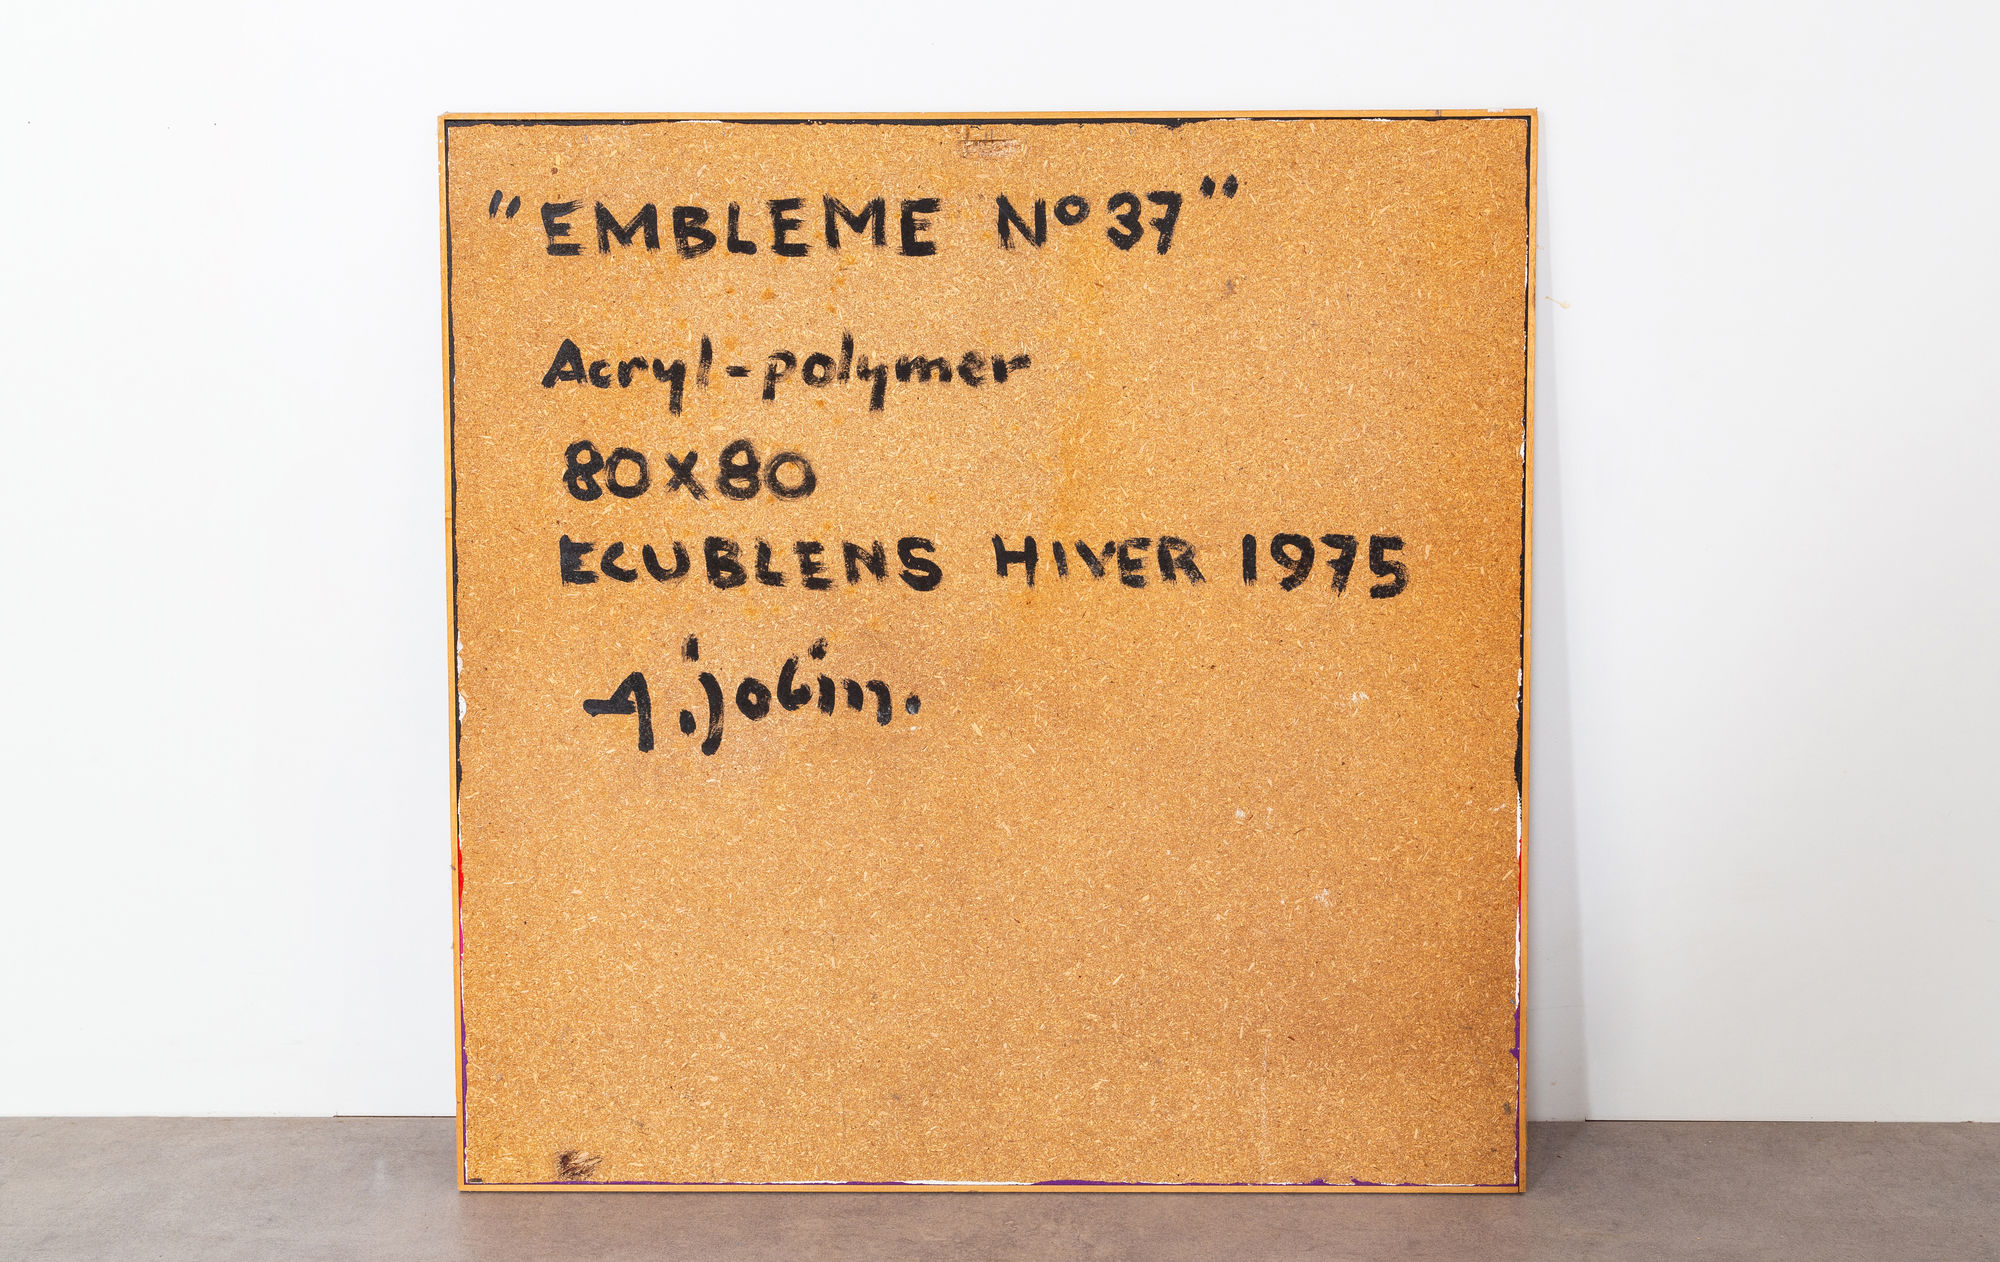 "EMBLEME No 37"
Acryl-polymer
80x80
ECUBLENS HIVER 1975
A. jobin.